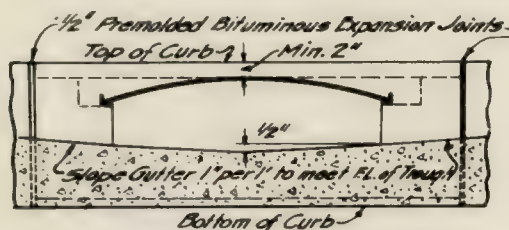 1/2" Premolded Bituminous Expansion Joints
Top of Curb
Min. 2"
1/2"
Slope Gutter 1" per 1' to meet El. of Trough
Bottom of Curb